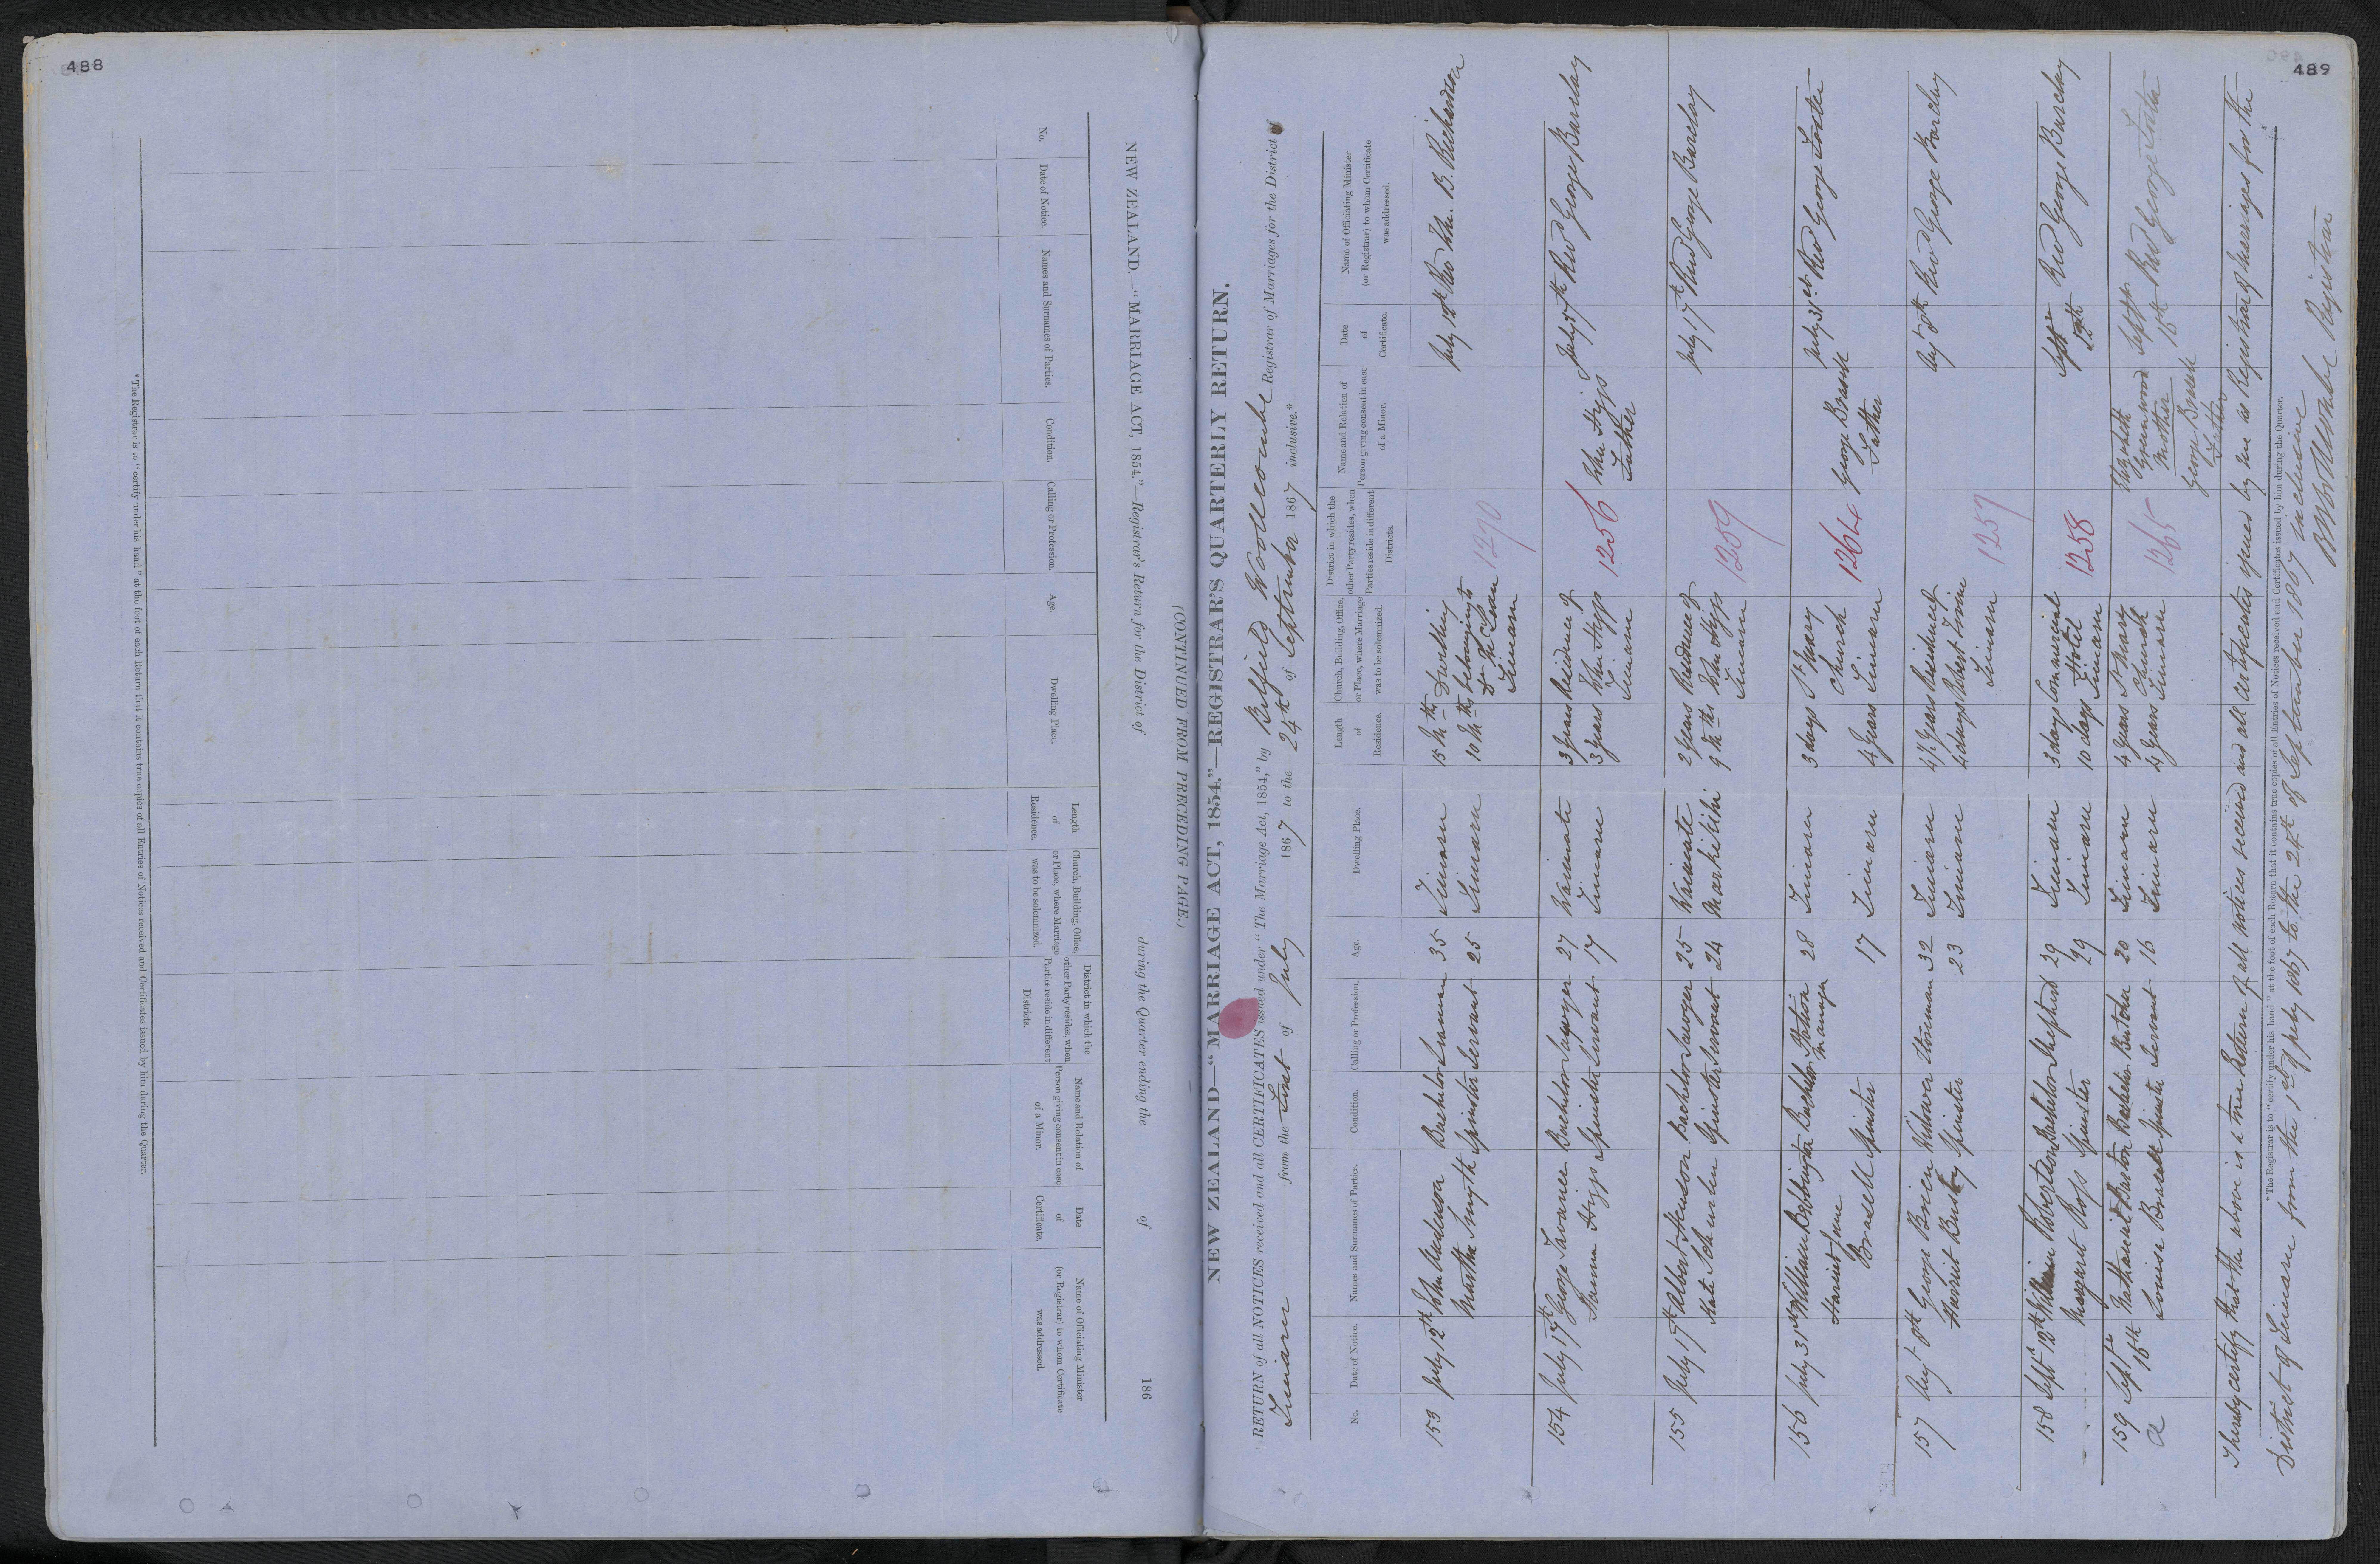 488
NEW ZEALAND.—“MARRIAGE ACT, 1854.”—Registrar's Return for the District of during the Quarter ending the of 186
(CONTINUED FROM PRECEDING PAGE.)
No.
Date of Notice.
Names and Surnames of Parties.
Condition.
Calling or Profession.
Age.
Dwelling Place.
Length
of
Residence.
Church, Building, Office,
or Place, where Marriage
was to be solemnized.
District in which the
other Party resides, when
Parties reside in different
Districts.
Name and Relation of
Person giving consent in case
of a Minor.
Date
of
Certificate.
Name of Officiating Minister
(or Registrar) to whom Certificate
was addressed.
*The Registrar is to “certify under his hand” at the foot of each Return that it contains true copies of all Entries of Notices received and Certificates issued by him during the Quarter.
489
NEW ZEALAND—“MARRIAGE ACT, 1854.”—REGISTRAR'S QUARTERLY RETURN.
RETURN of all NOTICES received and all CERTIFICATES issued under “The Marriage Act, 1854,” by Belfield Woollcombe Registrar of Marriages for the District of
Timaru from the First of July 1867 to the 24th of September 1867 inclusive.*
No.
Date of Notice.
Names and Surnames of Parties.
Condition.
Calling or Profession.
Age.
Dwelling Place.
Length
of
Residence.
Church, Building, Office,
or Place, where Marriage
was to be solemnized.
District in which the
other Party resides, when
Parties reside in different
Districts.
Name and Relation of
Person giving consent in case
of a Minor.
Date
of
Certificate.
Name of Officiating Minister
(or Registrar) to whom Certificate
was addressed.
153 July 12th John Anderson Bachelor 35 Timaru 15 Mths Dwelling July 12th Rev Wm. B. Richardson
Martha Smyth Spinster Servant 25 Timaru 10 Mths belonging to
1270
Timaru
154 July 17th George Bachelor Sawyer 27 Waimate 3 years Residence of John Higgs July 17th Revd George Barclay
Hannah Higgs Spinster Servant 17 Timaru 3 years John Higgs 1256 Father
Timaru
155 July 17th Albert Bachelor Sawyer 25 Waimate 2 years Residence of July 17th Revd George Barclay
Kate Spinster Servant 24 9 Mths John Higgs 1259
Timaru
156 July 31st William Bebbington Bachelor Station 28 Timaru 3 days St Mary George Brasell July 31st Revd George Foster
Manager
Harriet Jane Church 1264 Father
Brasell Spinster 17 Timaru 4 years Timaru
157 Augt 8th George Brien Widower Storeman 32 Timaru 4½ years Residence of Augt 8th Revd George Barclay
Harriet Spinster 23 Timaru 4 days Robert Irvine 1257
Timaru
158 Septr 12th William Robertson Bachelor Shepherd 29 Timaru 3 days Commercial Septr Revd George Barclay
Margaret Ross Spinster 29 Timaru 10 days Hotel 1258
Timaru
159 Septr 18th Nathaniel Barton Bachelor Butcher 20 Timaru 4 years St Mary Elizabeth Greenwood Septr 18th Revd George Foster
Mother
Louisa Brasell Spinster Servant 16 Timaru 4 years Church Timaru 1265 George Brasell
Father
I hereby certify that the above is a true Return of all notices received and all certificates issued by me as Registrar of marriages for the
*The Registrar is to “certify under his hand” at the foot of each Return that it contains true copies of all Entries of Notices received and Certificates issued by him during the Quarter.
District of Timaru from the 1st of July 1867 to the 24th of September 1867 inclusive
B Woollcombe Registrar